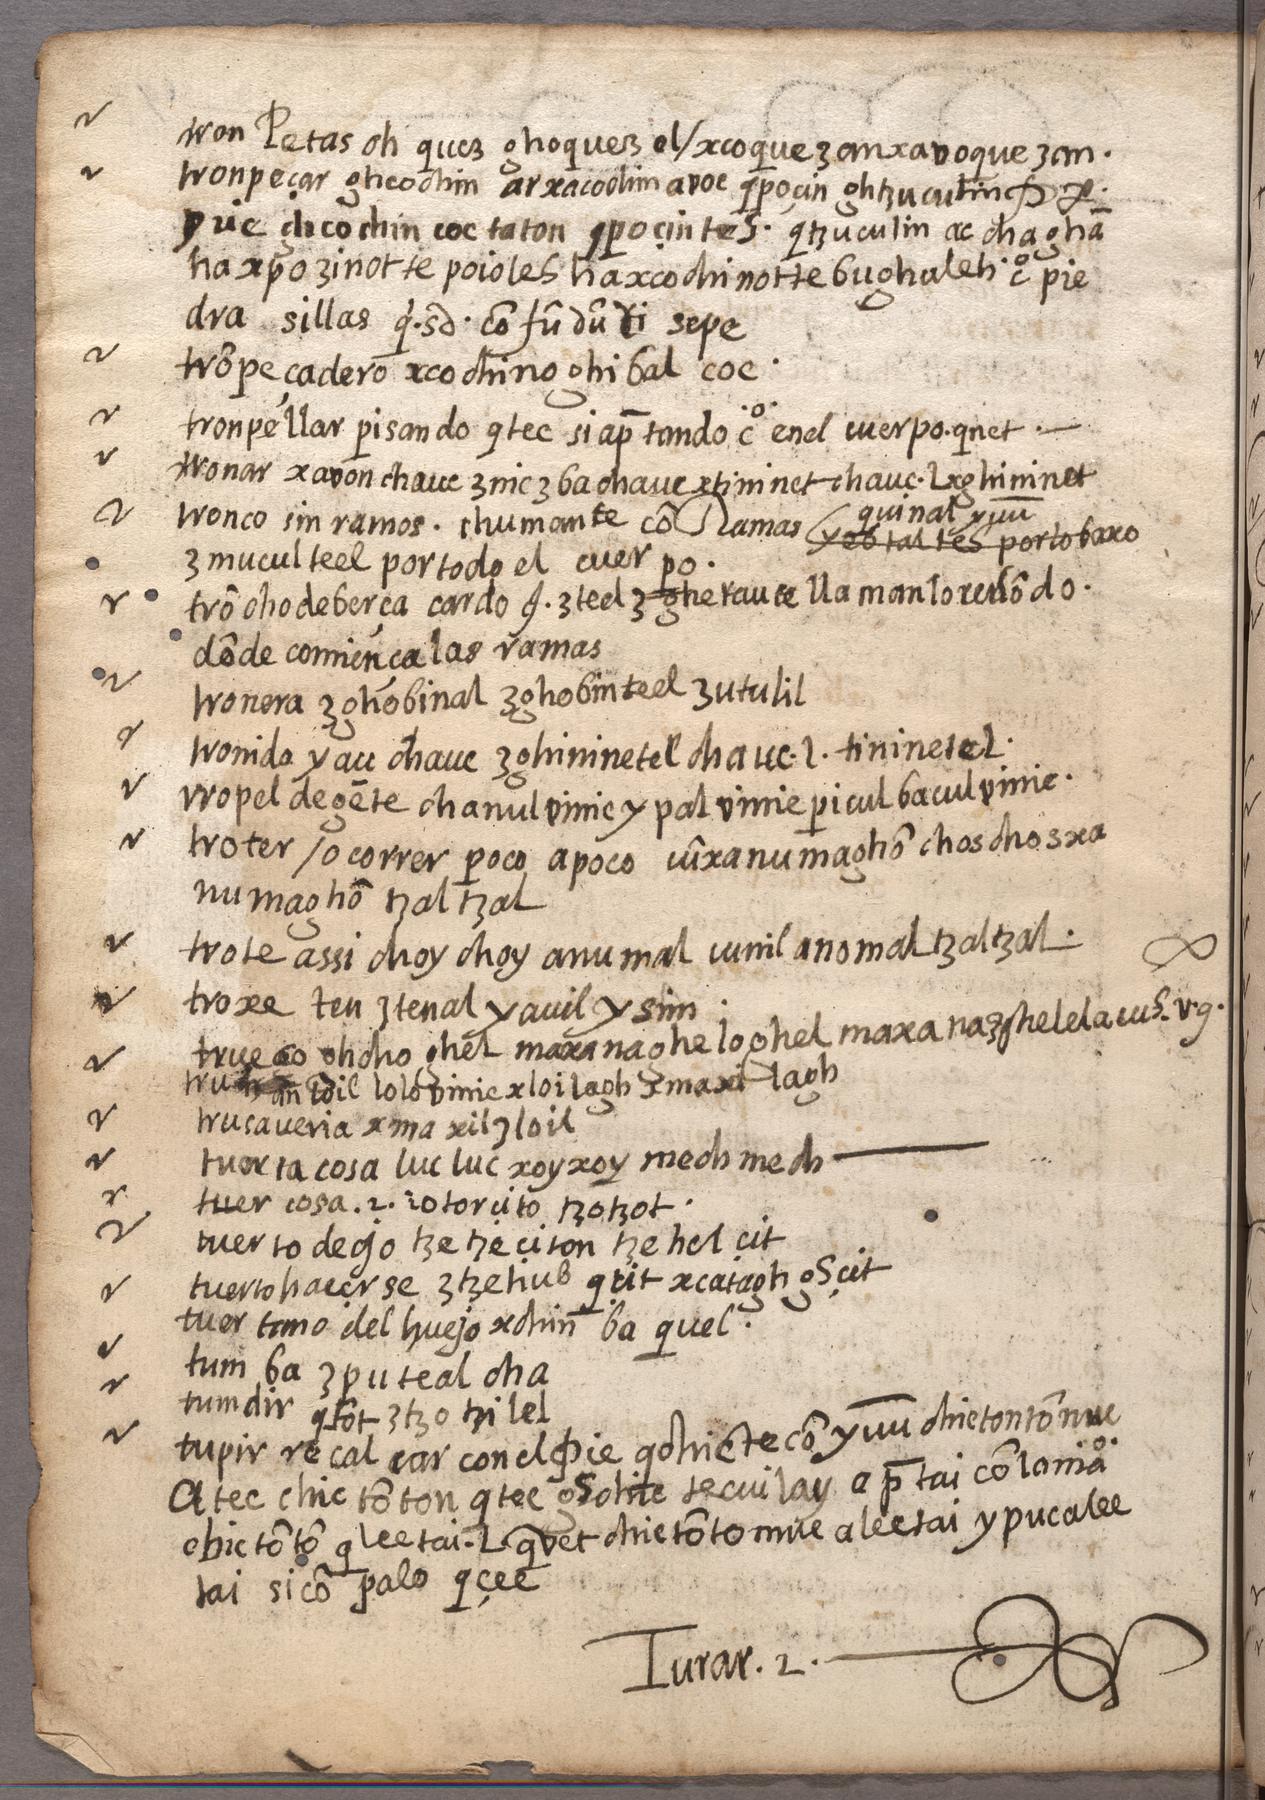 tron Petas oh quez ghoquez el/xcoque zan xavoque zan.
tronpeçar ghcochin arxacochin avoc qpoçin ghtzuculin
pie chcochin coc taton qpoçinteS. qtzuculin ac cha ghā
haxpozinotte poioles haxcochinotte bughuleh. c̊ pie
dra sillas q̇.sd. cō fū dūti sepe
trōpeçadero xcochinoghibal coc.
tronpellar pisando qtec si ap̄tando c̊ enel cuerpo. qnet.—
tronar xavon chauc znic z ba chauc xtininet chauc. l xghininet
tronco sin ramos. chumante cō Ramas quinal yuū
yeb tal tes porto baxo
z mucul teel por todo el cuerpo.
trōcho de berça cardo q̇. zteel z gherauce llaman lo redōdo.
dōde comiença las ramas
tronera zghobinal zghobinteel zutulil
tronido yau chauc zghininetel chauc. l. tininetel.
tropel degēte chanul vinic y pal vinic picul bacul vinic.
troter /o correr poco apoco cūxanumaghō choschosxa
numaghō tzaltzal
trote assi choy choy anumal cunil anomal tzaltzal.
troxe ten ztenal yauil ysim.
trueco ghcho ghel maxanaghe loghel maxanazghelelacuS. v.g.
truhan loil lolo vinic xloilagh xmaxilagh
trusaveria xmaxil zloil
tuerta cosa luc luc xoyxoy mech mech —
tuer cosa. 2. ło torçito tzotzot.
tuerto deojo tze tzeçiton tzehel çit
tuerto haçerse ztzehub qçit xcatagh gSçit
tuertano del huejo xchiñ ba quel.
tumba zputeal cha
tumdir qtōt ztzotzilel
tupir recalcar con el pie qchicte cō yuū chictontōnuc
Atec chic tōton qtec gSchitc tecuilay ap̄tai cō lamå
chic tōtō q leetai. l qvet chic tōtonnuc aleetai ypucalee
tai si cō palo qçee
Turar. 2.